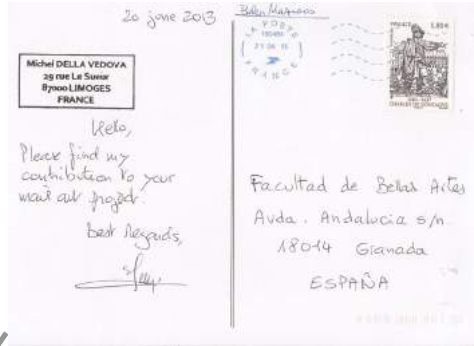 20 june 2013
Michel DELLA VEDOVA
29 rue Le Sueur
87000 LIMOGES
FRANCE
Hello,
Please find my
contribution to your
mail art project.
Best Regards,
Belén Mazuecos
LA POSTE
FRANCE
FRANCE
Facultad de Bellas Artes
Avda. Andalucia s/n.
18014 Granada
ESPAÑA